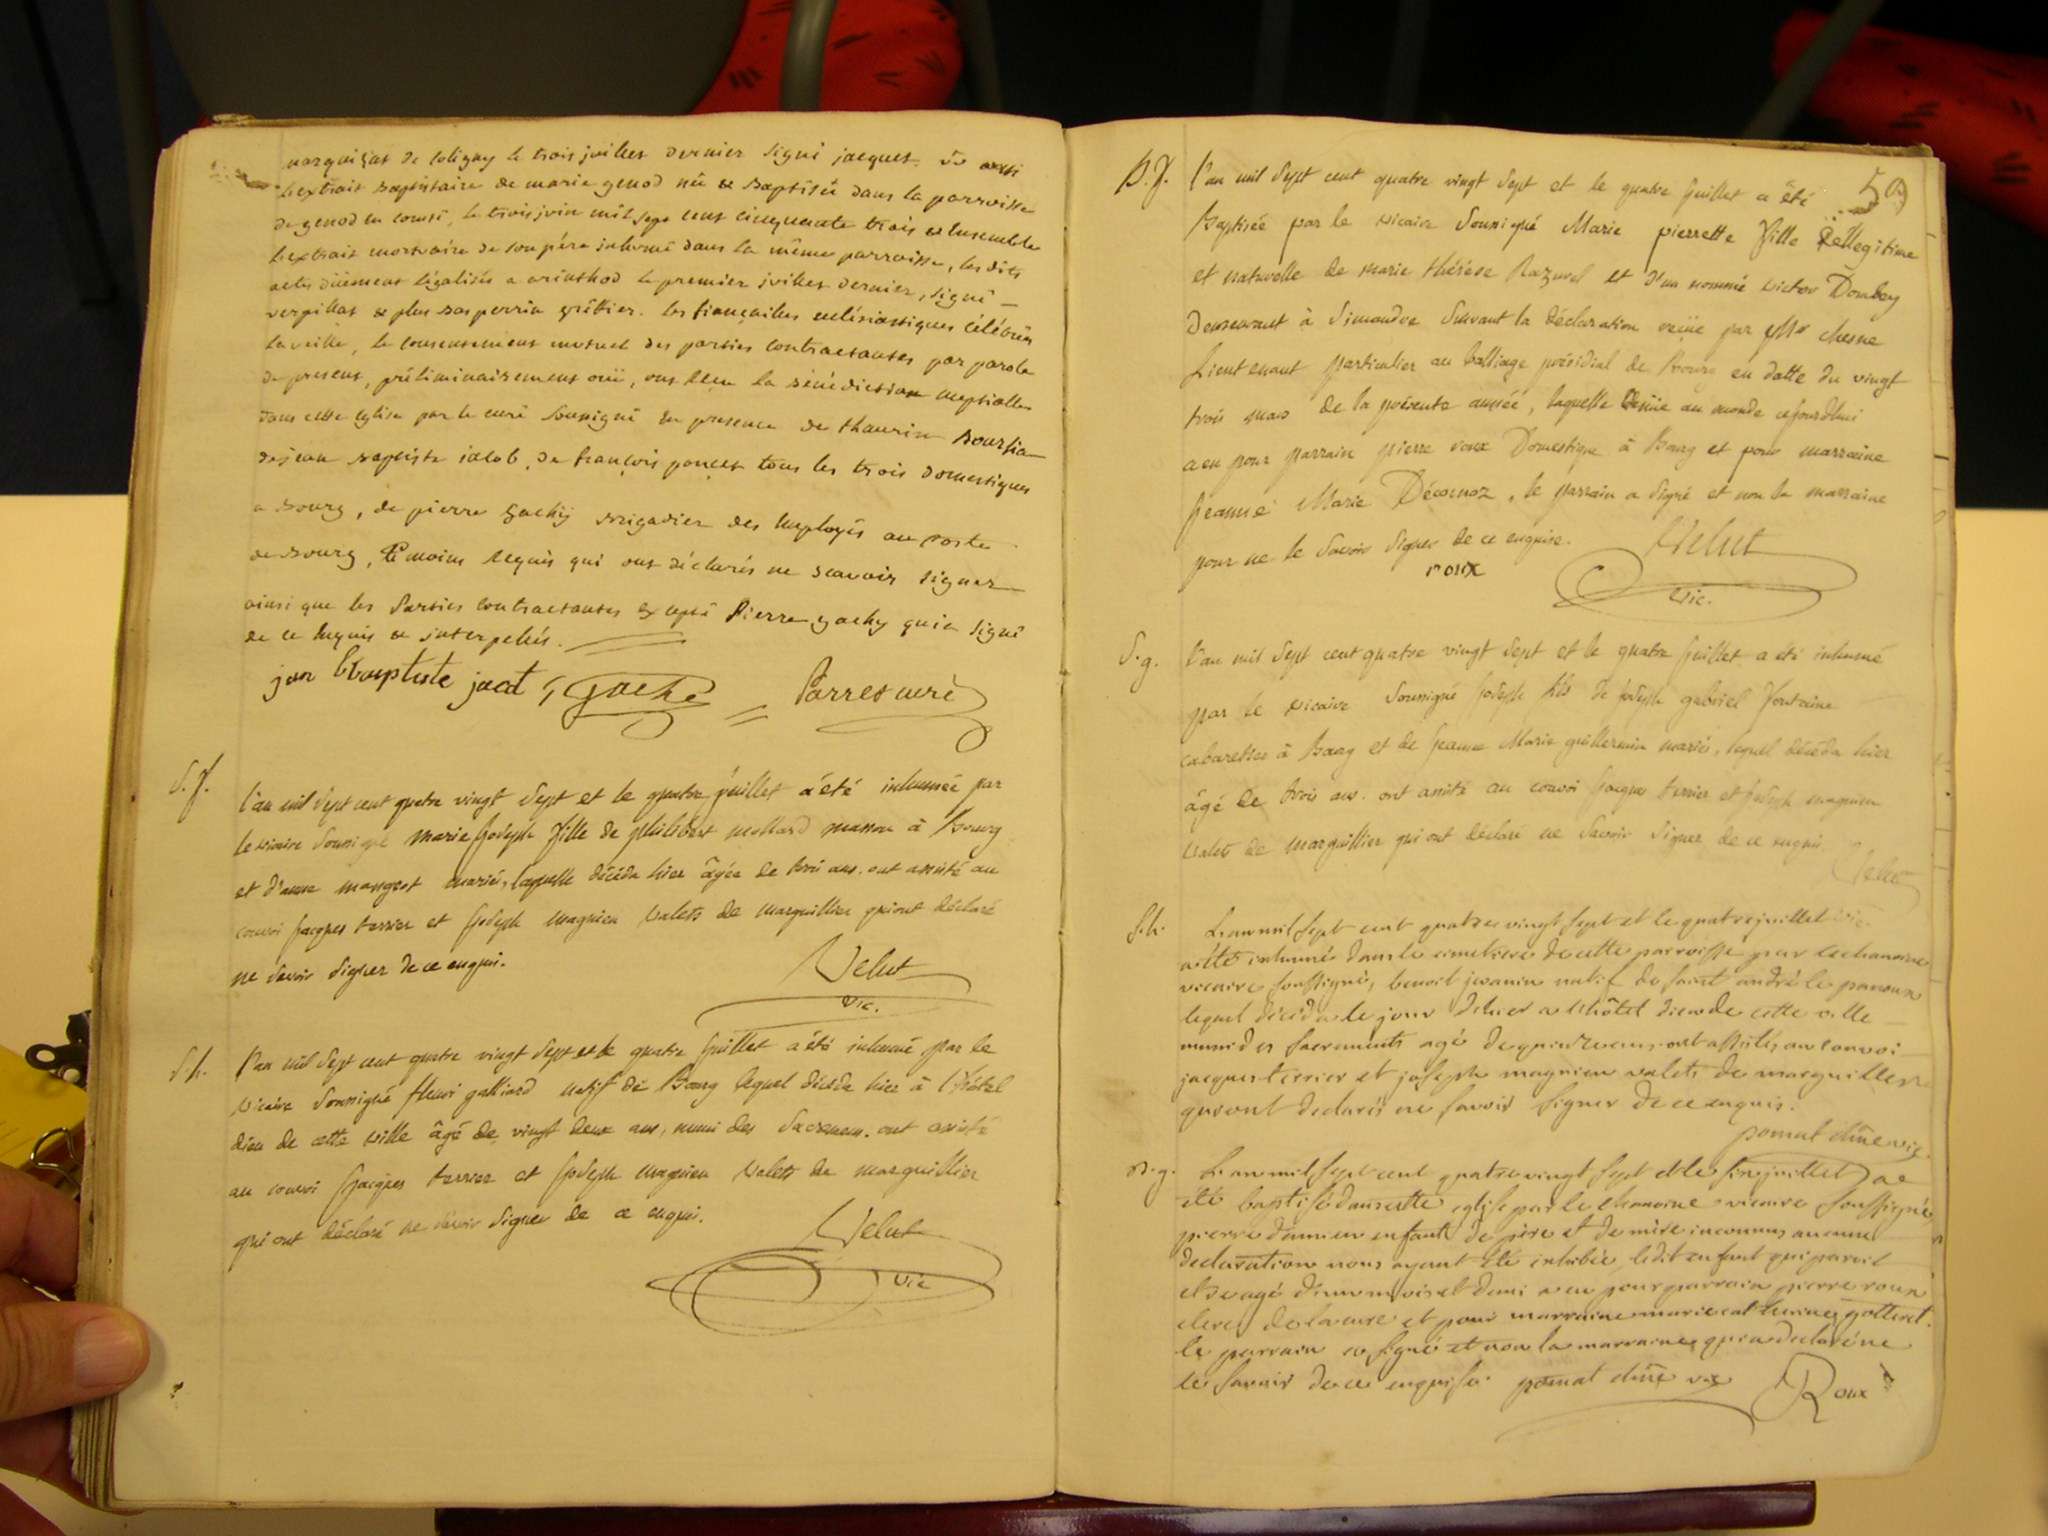 marquisat de coligny le trois juillet dernier signé jacquet. vu aussi
l'extrait baptistaire de marie genod née et baptisée dans la parroisse
de genod en comté, le trois juin mil sept cent cinquante trois et ensemble
l'extrait mortuaire de son père inhumé dans la même parroisse, les dits
actes düement légalisés a arinthod le premier juillet dernier, signé
verpillat et plus bas perrin gréffier. les fiançailles ecclésiastiques célébrées
la veille, le consentement mutuel des parties contractantes par parole
de present, préliminairement ouï, ont reçu la bénédiction nuptialle
dans cette eglise par le curé soussigné en presence de thaurin
de jean baptiste jacob, de françois poncet tous les trois domestiques
a bourg, de pierre gachy brigadier des employés au poste
de bourg, témoins requis qui ont déclarés ne scavoir signer
ainsi que les parties contractantes excepté pierre gachy qui a signé
de ce enquis et interpellés.
jan bauptiste jacot, gache Parret curé
S.f.
L'an mil sept cent quatre vingt sept et le quatre juillet a été inhumée par
le vicaire soussigné marie joseph fille de philibert mollard masson à Bourg
et d'anne mangeot mariés, laquelle décéda hier âgée de trois ans. ont assisté au
convoi jacques terrier et joseph magnien valets de marguillier qui ont déclaré
ne savoir signer de ce enquis.
Velut
vic.
S.h.
L'an mil sept cent quatre vingt sept et le quatre juillet a été inhumé par le
vicaire soussigné henri galliard natif de Bourg lequel décéda hier à l'hôtel
dieu de cette ville âgé de vingt deux ans, muni des sacremens. ont assisté
au convoi jacques terrier et joseph magnien valets de marguillier
qui ont déclaré ne savoir signer de ce enquis.
Velut
vic
59
B.f. L'an mil sept cent quatre vingt sept et le quatre juillet a été
Baptisée par le vicaire soussigné Marie pierrette fille illegitime
et naturelle de marie thérèse Razurel et d'un nommé victor Dombey
demeurant à Simandre suivant la déclaration reçüe par Mr chesne
Lieutenant particulier au balliage présidial de Bourg en datte du vingt
trois mars de la présente année, laquelle venüe au monde cejourd'hui
a eu pour parrain pierre roux Domestique à Bourg et pour marraine
jeanne Marie Décornoz, le parrain a signé et non la marraine
pour ne le savoir signer de ce enquise.
roux
Velut
vic.
S.g. L'an mil sept cent quatre vingt sept et le quatre juillet a été inhumé
par le vicaire soussigné joseph fils de joseph gabriel fontaine
cabaretier à Bourg et de jeanne Marie guillermin mariés, lequel décéda hier
âgé de trois ans. ont assisté au convoi jacques terrier et joseph magnien
valets de marguillier qui ont déclaré ne savoir signer de ce enquis
Velut
vic.
S.h. L'an mil sept cent quatre vingt sept et le quatre juillet
a été inhumé dans le cimetiere de cette parroisse par le chanoine
vicaire soussigné, benoit jeanin natif de saint andré le panoux
lequel décéda le jour d'hier a l'hôtel dieu de cette ville
muni des sacrements agé de quinze ans. ont assistés au convoi
jacques terrier et joseph magnien valets de marguillier
qui ont declarés ne savoir signer de ce enquis.
pomat chne vic.
B.g. L'an mil sept cent quatre vingt sept et le sinq juillet a
été baptisé dans cette eglise par le chanoine vicaire soussigné,
pierre damien enfant de père et de mère inconnus aucune
declaration nous ayant été exhibée, ledit enfant qui paroit
etre agé d'un mois et demi a eu pour parrain pierre roux
clerc de la cure et pour marraine marie catherine gotteret.
le parrain a signé et non la marraine qui a declaré ne
le savoir de ce enquise. pomat chne vic Roux